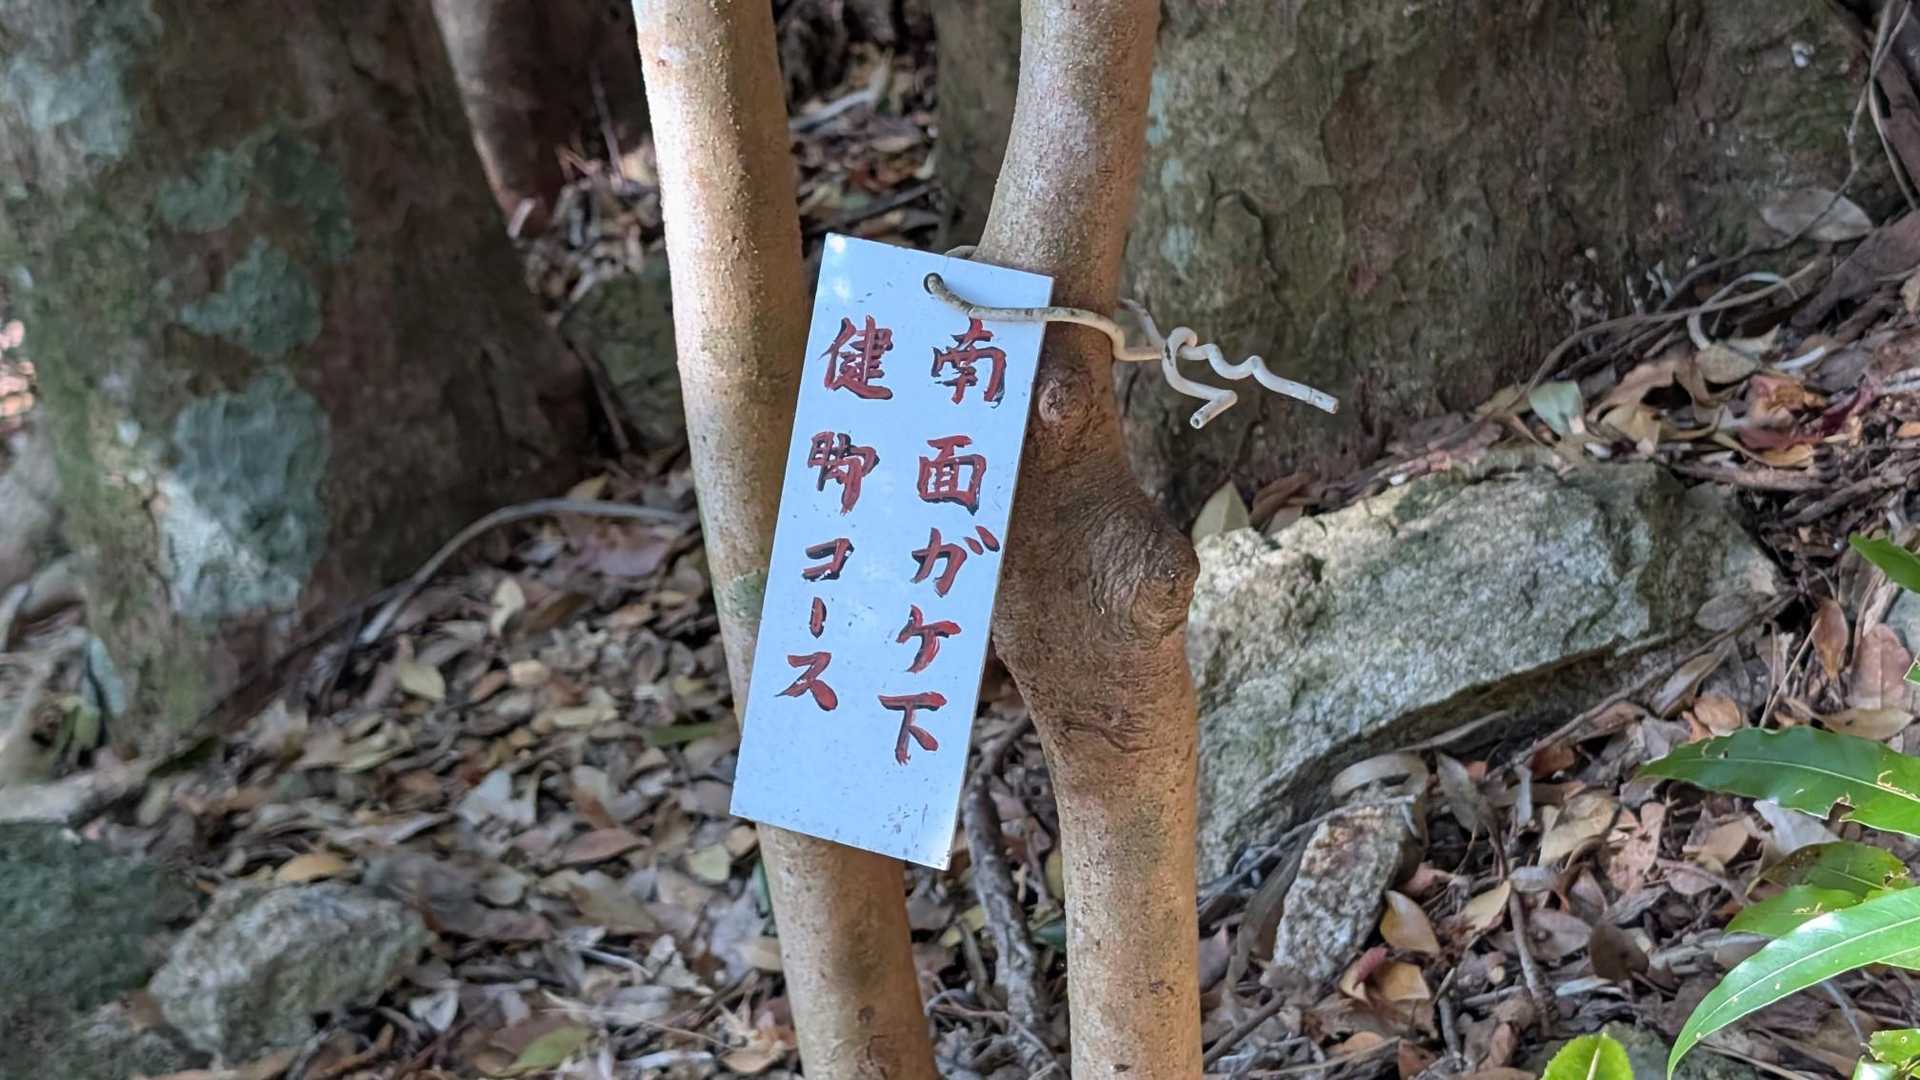 南面ガケ下
健脚コース